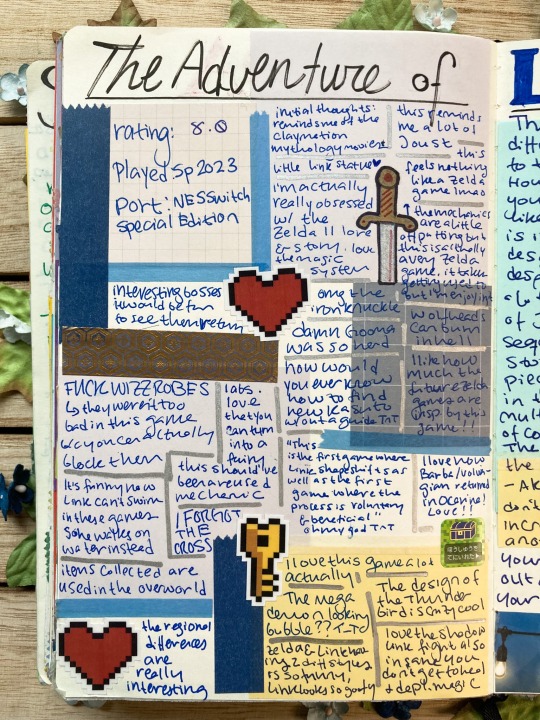 The Adventure of
rating: 8.0
Played Sp 2023
Port: NESSwitch
special Edition
initial thoughts:
reminds me of the
claymation
mythology movies
little link statue
i'm actually
really obsessed
w/ the
Zelda II lore
& story. love
the magic
system
this reminds
me a lot of
Joust
this
feels nothing
like a Zelda
game lmao
the mechanics
are a little
offputting but
this is actually
a very Zelda
game. it takes
getting used to
but i'm enjoyin
interesting bosses
it would be fun
to see them return
omg the
iron knuckle
damn Gooma
was so hard
how would
you ever know
how to find
new Kasuto
w/out a guide TnT
wolfheads
can burn
in hell
i like how
much the
future Zelda
games are
insp by this
game!!
FUCK WIZZROBES
↳ they weren't too
bad in this game
b/c you can actually
block them
labs.
love
that you
can turn
into a
fairy
this should've
been a reused
mechanic
It's funny how
Link can't swim
in these games
So he walks on
water instead
I FORGOT
THE
CROSS
items collected are
used in the overworld
the regional
differences
are
really
interesting
"This
is the first game where
Link shapeshifts as
well as the first
game where the
process is voluntary
& beneficial"
oh my god TnT
I love how
Barba/Volva-
gian returned
in Ocarina!
Love!!
I love this game a lot
actually!
The mega
demon looking
bubble?? TnT
Zelda & Link hav-
ing 2 diff styles
is so funny,
Link looks so goofy
The design of
the Thunder
bird is crazy cool
love the shadow
link fight also
insane you
don't get to heal
& depl. magic
L